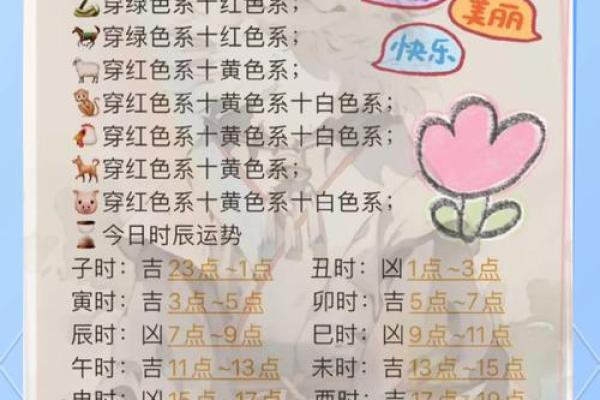 🐍穿绿色系十红色系;
🐎穿绿色系十红色系;
🐑穿红色系十黄色系;
🐒穿红色系十黄色系十白色系;
🐔穿红色系十黄色系十白色系;
🐕穿红色系十黄色系;
🐷穿红色系十黄色系十白色系;
美丽
快乐
⌛今日时辰运势
子时：吉23点~1点 丑时：凶1点~3点
寅时：吉3点~5点 卯时：吉5点~7点
辰时：凶7点~9点 巳时：凶9点~11点
午时：吉11点~13点 未时：吉13点~15点
申时：凶15点~17点 酉时：吉17点~19点